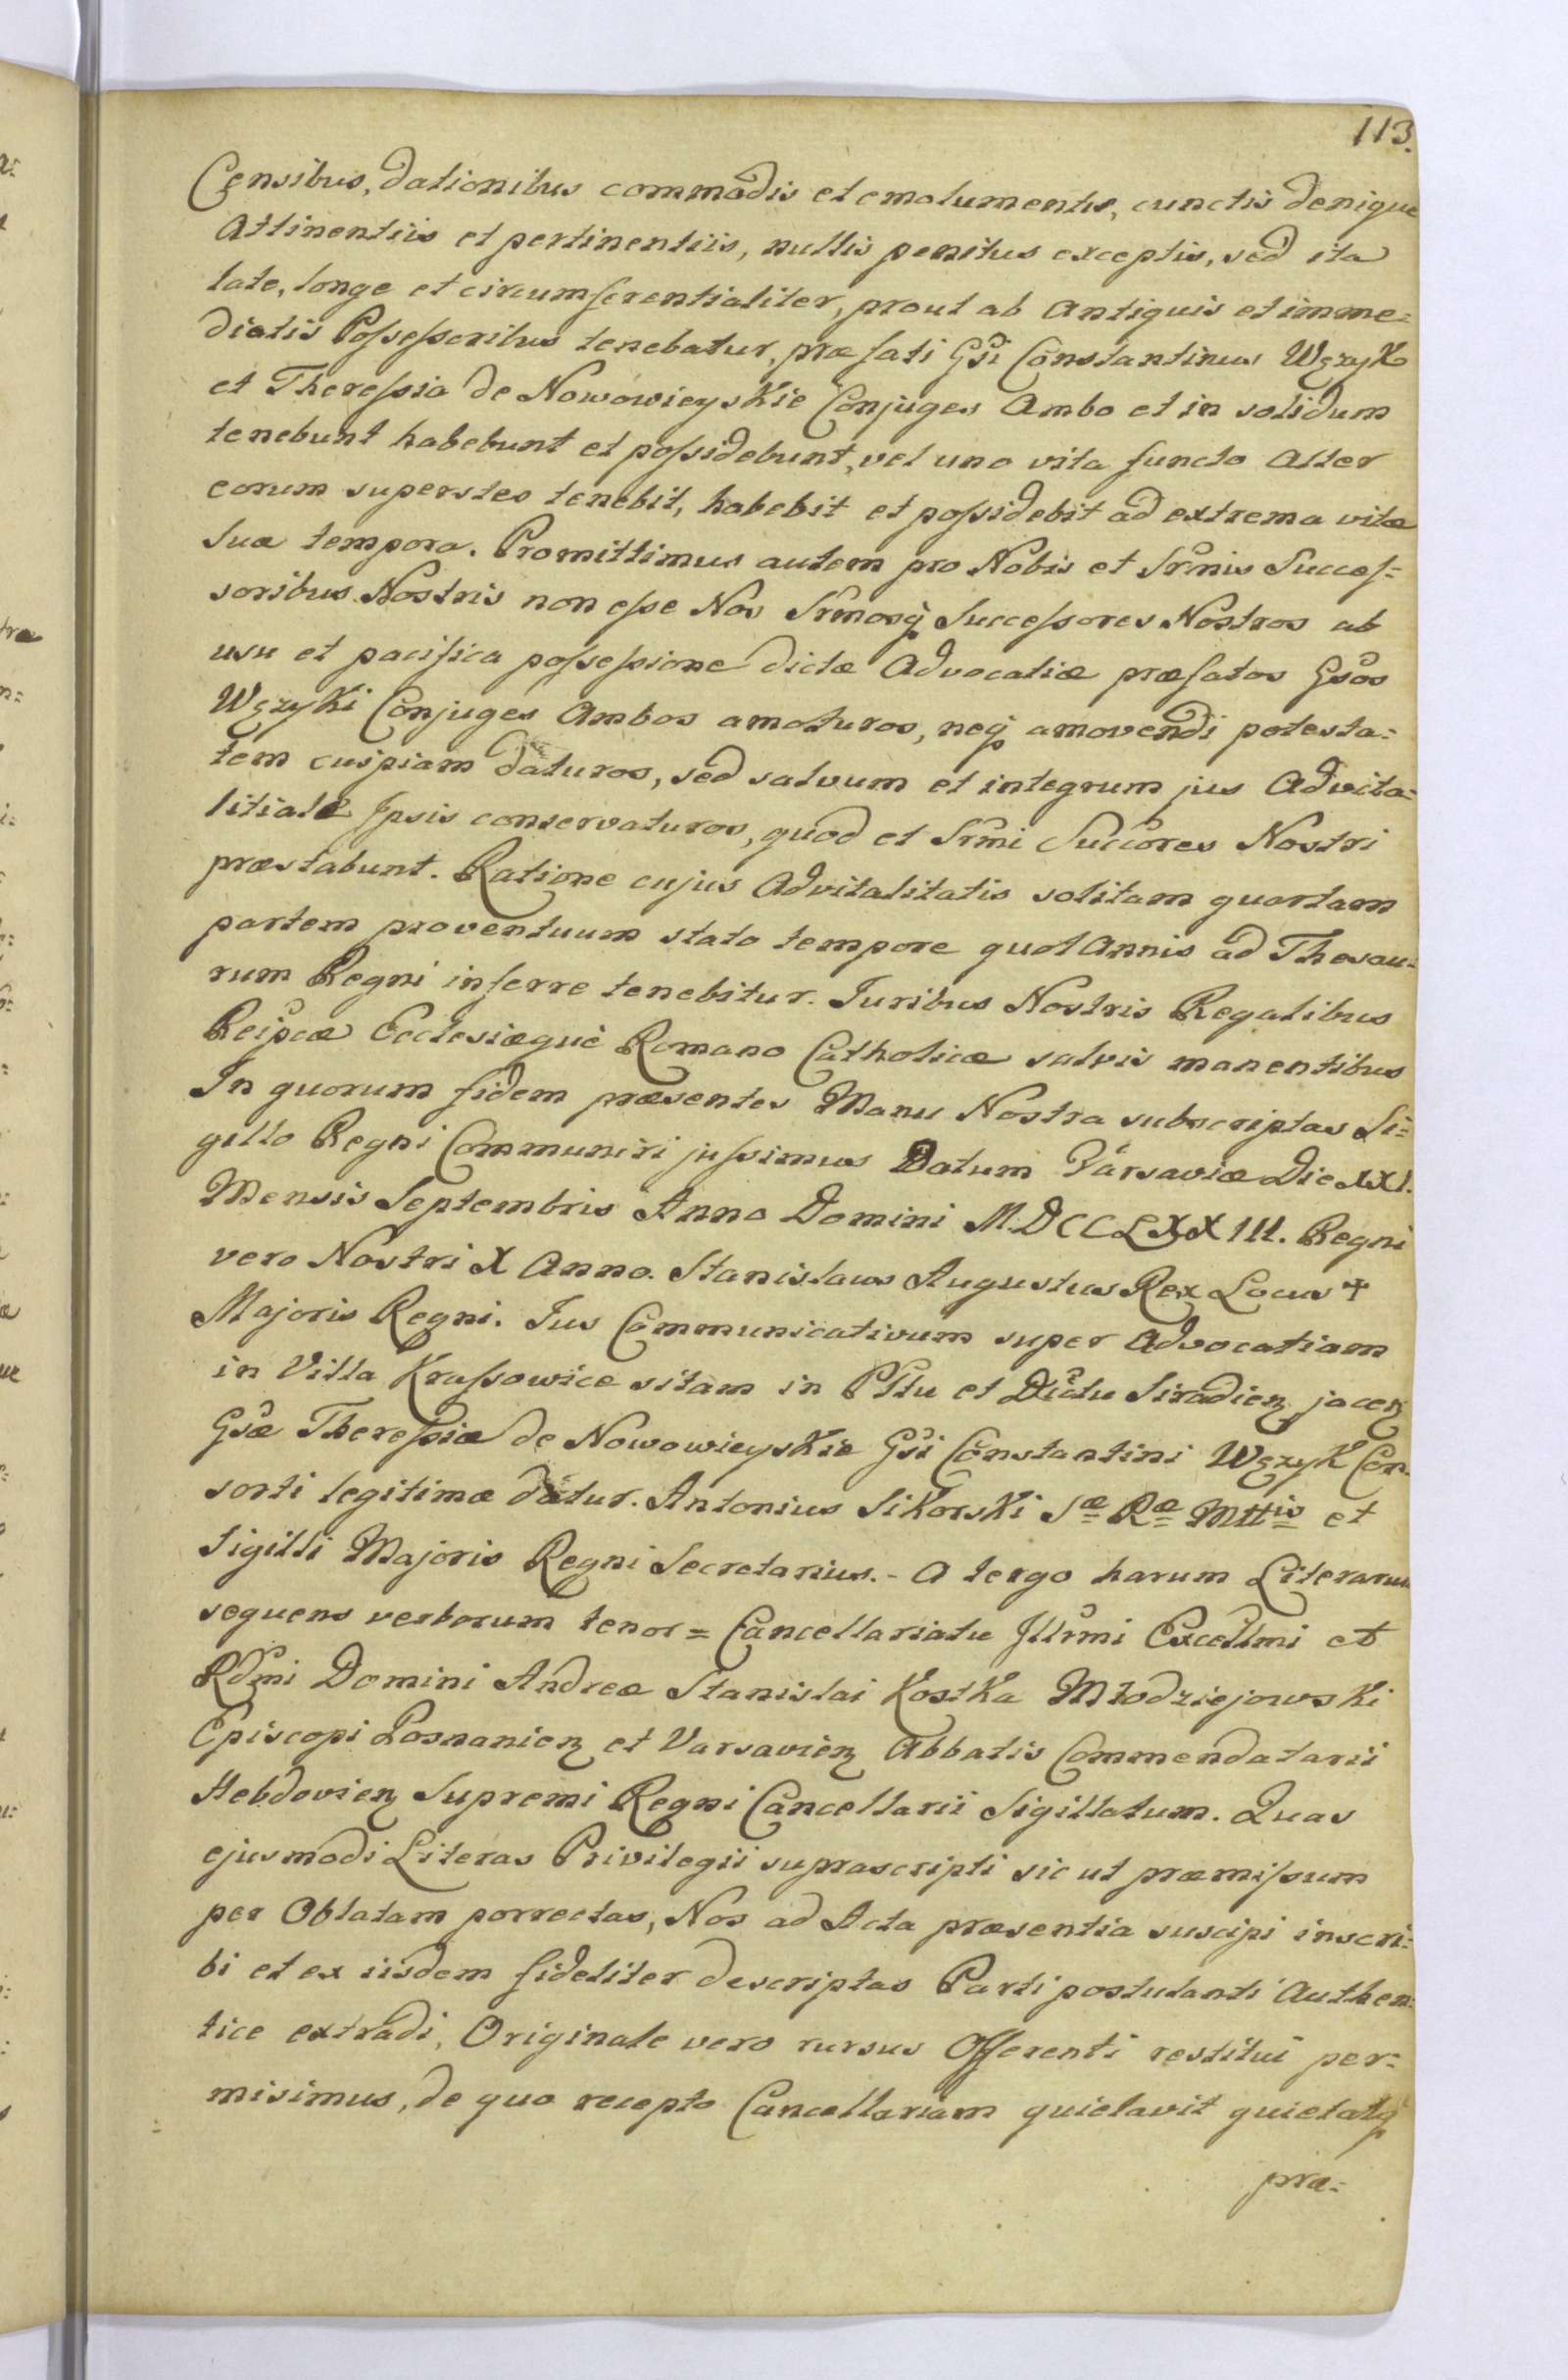 113.
Censibus, dationibus commodis et emolumentis, cunctis denique
Attinentiis et pertinentiis, nullis penitus exceptis, sed ita
late, longe et circumferentialiter, prout ab Antiquis et imme=
diatis Possessoribus tenebatur, præfati Gsi Constantinus Wężyk
et Theressia de Nowowieyskie Conjuges Ambo et in solidum
tenebunt habebunt et possidebunt, vel uno vita functo Alter
eorum superstes tenebit, habebit et possidebit ad extrema vitæ
suæ tempora. Promittimus autem pro Nobis et Srmis Succes=
soribus Nostris non esse Nos Srmosq Successores Nostros ab
usu et pacifica possessione dictæ Advocatiæ præfatos Gsos
Wężyki Conjuges Ambos amoturos, neq amovendi potesta=
tem cuipiam daturos, sed salvum et integrum jus Advita=
litiale Ipsis conservaturos, quod et Srmi Succores Nostri
præstabunt. Ratione cujus Advitalitatis solitam quartam
partem proventuum stato tempore quot Annis ad Thesau=
rum Regni inferre tenebitur. Juribus Nostris Regalibus
Reipcæ Ecclesiæque Romano Catholicæ salvis manentibus
In quorum fidem præsentes Manu Nostra subscriptas Si=
gillo Regni Communiri jussimus Datum Varsaviæ Die XXI.
Mensis Septembris Anno Domini M.DCCLXXIII. Regni
vero Nostri X Anno. Stanislaus Augustus Rex Locus +
Majoris Regni. Jus Communicativum super Advocatiam
in Villa Krassowice sitam in Pttu et Dictu Siradien jacen
Gsæ Theressiæ de Nowowieyskie Gsi Constantini Wężyk Con=
sorti legitimæ datur. Antonius Sikorski Sæ Ræ Mttis et
Sigilli Majoris Regni Secretarius. - A tergo harum Literarum
sequens verborum tenor = Cancellariatu Illrmi Excellmi et
Rdmi Domini Andreæ Stanislai Kostka Młodziejowski
Episcopi Posnanien et Varsavien Abbatis Commendatarii
Hebdovien Supremi Regni Cancellarii Sigillatum. Quas
ejusmodi Literas Privilegii suprascripti sic ut præmissum
per Oblatam porrectas, Nos ad Acta præsentia suscipi inscri=
bi et ex iisdem fideliter descriptas Parti postulanti Authen=
tice extradi, Originale vero rursus Offerenti restitui per=
misimus, de quo recepto Cancellariam quietavit quietatq
præ=